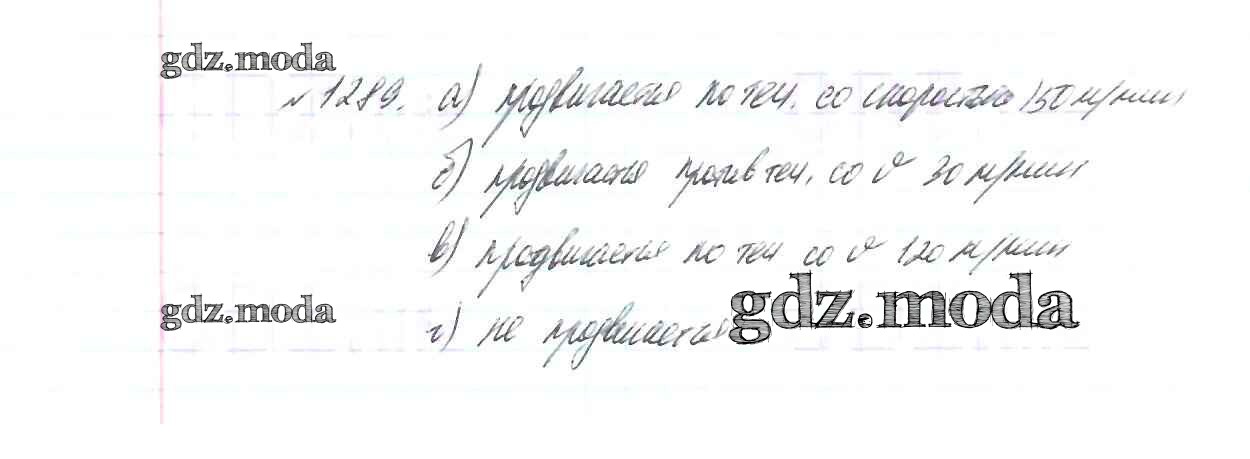 gdz.moda
№1289. а) продвигается по теч. со скоростью 150 м/мин
б) продвигается против теч. со v 30 м/мин
в) продвигается по теч со v 120 м/мин
gdz.moda
г) не продвигается
gdz.moda